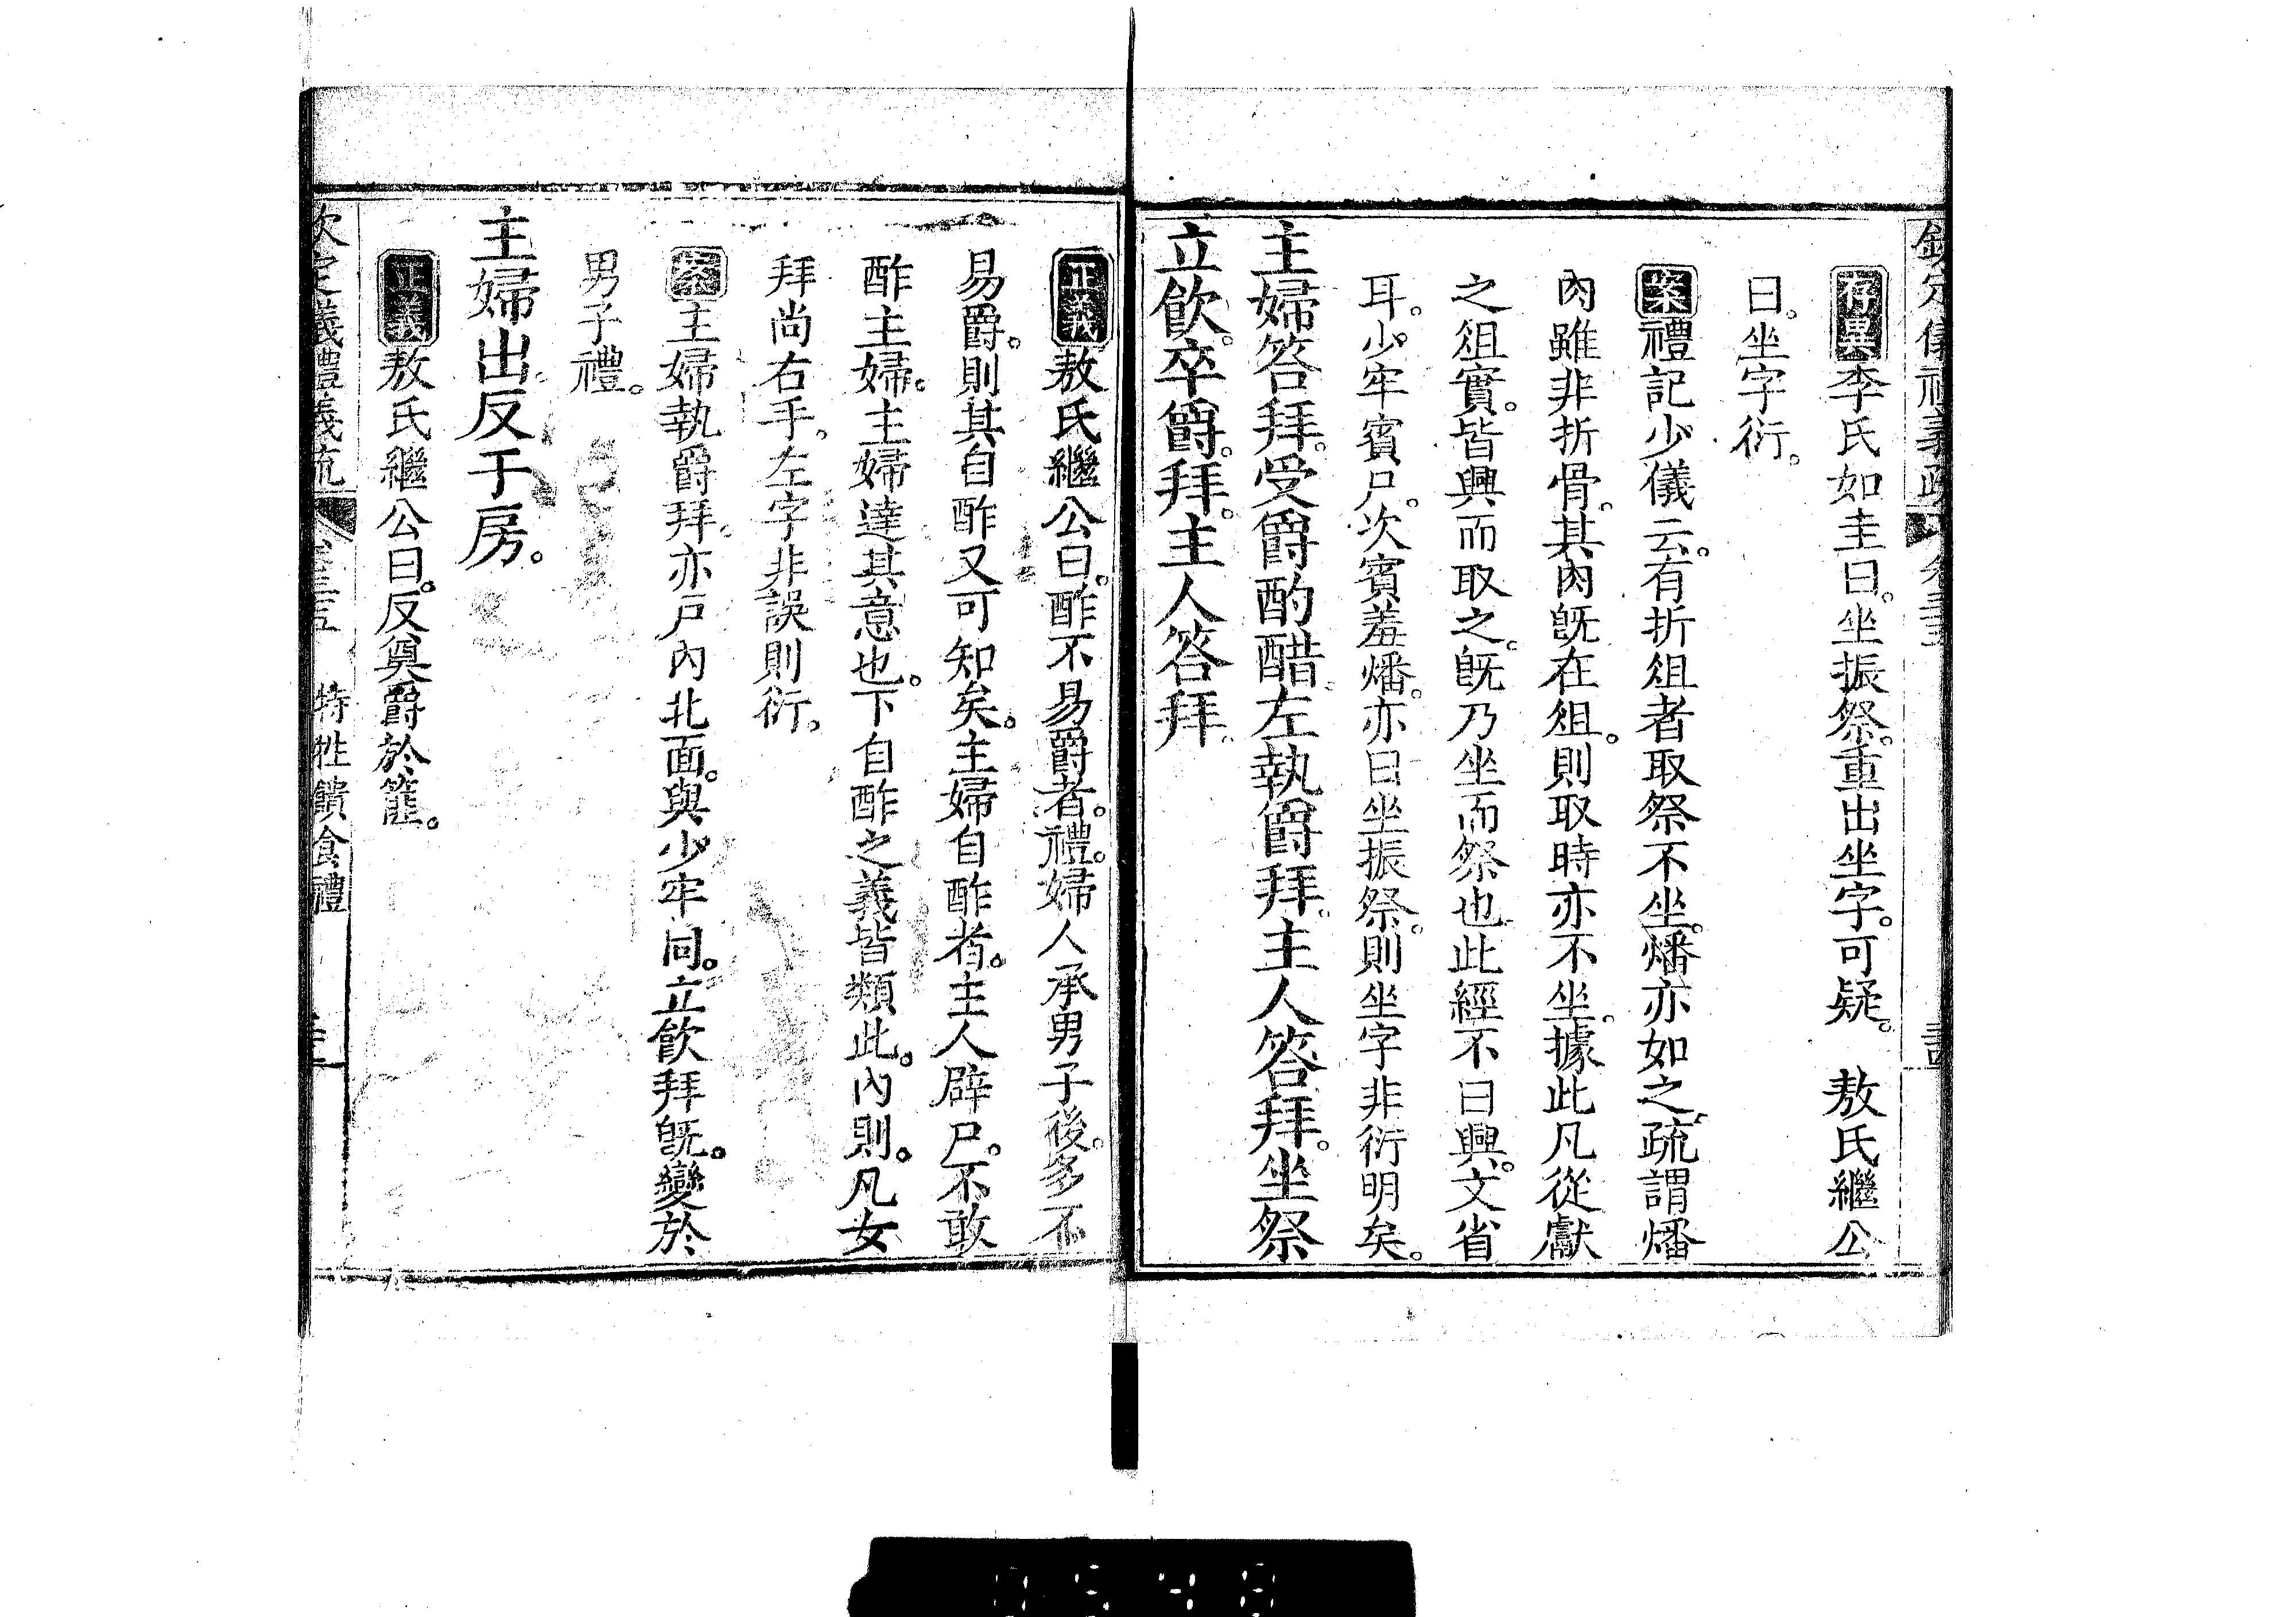 存異李氏如圭曰。坐振祭。重出坐字。可疑。　敖氏繼公
曰。坐字衍。
案禮記少儀云。有折俎者取祭不坐。燔亦如之。疏謂燔
肉雖非折骨。其肉旣在俎。則取時亦不坐。據此凡從獻
之俎實。皆興而取之。旣乃坐而祭也此經不曰興。文省
耳。少牢賓尸。次賓羞燔。亦曰坐振祭。則坐字非衍明矣。
主婦答拜。受爵酌醋。左執爵拜。主人答拜。坐祭
立飮。卒爵。拜。主人答拜。
正義敖氏繼公曰。酢不易爵者。禮。婦人承男子後。多不
易爵。則其自酢又可知矣。主婦自酢者。主人辟尸。不敢
酢主婦。主婦達其意也。下自酢之義皆類此。內則。凡女
拜尚右手。左字非誤則衍。
案主婦執爵拜。亦戶內北面。與少牢同。立飮拜旣。變於
男子禮。
主婦出。反于房。
正義敖氏繼公曰。反奠爵於篚。
欽定儀禮義疏　特牲饋食禮